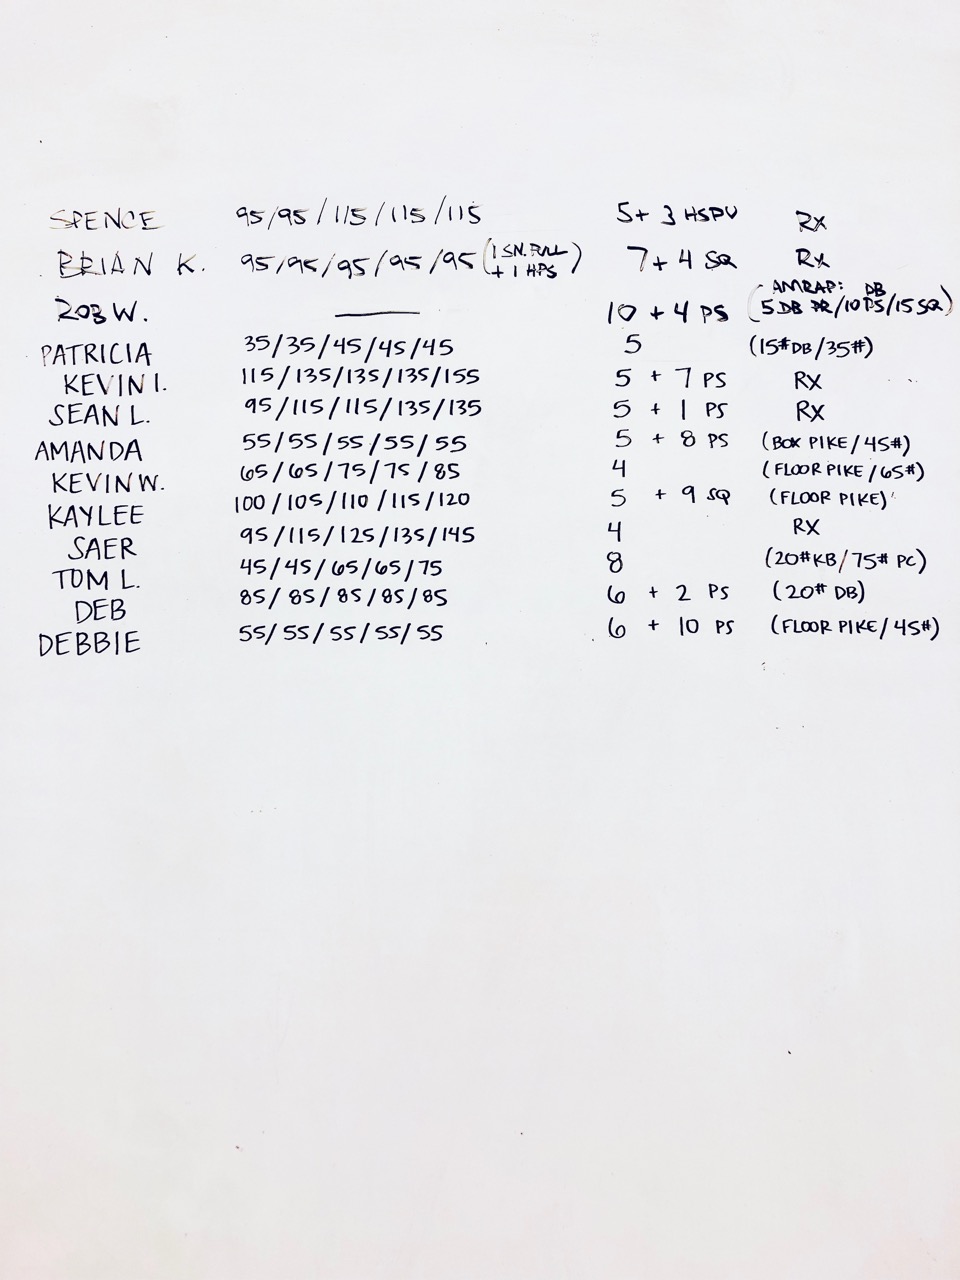 SPENCE 95/95/115/115/115 5+ 3 HSPU RX
BRIAN K. 95/95/95/95/95 (1 SN. PULL + 1 HPS) 7+ 4 SQ RX
ROB W. — 10 + 4 PS (AMRAP: DB 5 DB PR/10 PS/15 SQ)
PATRICIA 35/35/45/45/45 5 (15#DB/35#)
KEVIN I. 115/135/135/135/155 5 + 7 PS RX
SEAN L. 95/115/115/135/135 5 + 1 PS RX
AMANDA 55/55/55/55/55 5 + 8 PS (BOX PIKE/45#)
KEVIN W. 65/65/75/75/85 4 (FLOOR PIKE/65#)
KAYLEE 100/105/110/115/120 5 + 9 SQ (FLOOR PIKE)
SAER 95/115/125/135/145 4 RX
TOM L. 45/45/65/65/75 8 (20#KB/75# PC)
DEB 85/85/85/85/85 6 + 2 PS (20# DB)
DEBBIE 55/55/55/55/55 6 + 10 PS (FLOOR PIKE/45#)